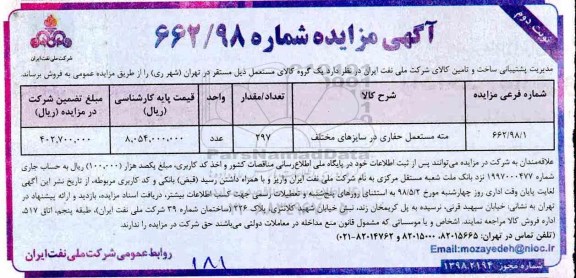 نوبت دوم
آگهی مزایده شماره ۶۶۲/۹۸
شرکت ملی نفت ایران
مدیریت پشتیبانی ساخت و تامین کالای شرکت ملی نفت ایران در نظر دارد یک گروه کالای مستعمل ذیل مستقر در تهران (شهر ری) را از طریق مزایده عمومی به فروش برساند.
شماره فرعی مزایده | شرح کالا | تعداد/مقدار | واحد | قیمت پایه کارشناسی (ریال) | مبلغ تضمین شرکت در مزایده (ریال)
۶۶۲/۹۸/۱ | مته مستعمل حفاری در سایزهای مختلف | ۲۹۷ | عدد | ۸,۰۵۴,۰۰۰,۰۰۰ | ۴۰۲,۷۰۰,۰۰۰
علاقه‌مندان به شرکت در مزایده می‌توانند پس از ثبت اطلاعات خود در پایگاه ملی اطلاع‌رسانی مناقصات کشور و اخذ کد کاربری، مبلغ یکصد هزار (۱۰۰,۰۰۰) ریال به حساب جاری
شماره ۱۹۹۷۰۰۰۴۷۷ نزد بانک ملت شعبه مستقل مرکزی به نام شرکت ملی نفت ایران واریز و با همراه داشتن رسید (فیش) بانکی و کد کاربری مربوطه، از تاریخ نشر این آگهی
لغایت پایان وقت اداری روز چهارشنبه مورخ ۹۸/۵/۲ به استثنای روزهای پنج‌شنبه و تعطیلات رسمی جهت کسب اطلاعات بیشتر، دریافت اسناد مزایده، بازدید و ارائه پیشنهاد در
تهران به نشانی: خیابان سپهبد قرنی، نرسیده به پل کریمخان زند، نبش خیابان شهید کلانتری، پلاک ۲۲۶ (ساختمان شماره ۳۹ شرکت ملی نفت ایران)، طبقه پنجم، اتاق ۵۱۷،
اداره فروش کالا مراجعه نمایند. اشخاص و یا موسساتی که مشمول قانون منع مداخله در معاملات دولتی می‌باشند حق شرکت در مزایده را ندارند.
(تلفن تماس در تهران: ۸۲۰۱۵۶۶۵، ۸۲۰۱۵۰۰۰ و ۸۲۰۱۴۷۶۲-۰۲۱)
Email:mozayedeh@nioc.ir
روابط عمومی شرکت ملی نفت ایران
۱۸۱
شماره مجوز: ۱۳۹۸.۲۱۹۴